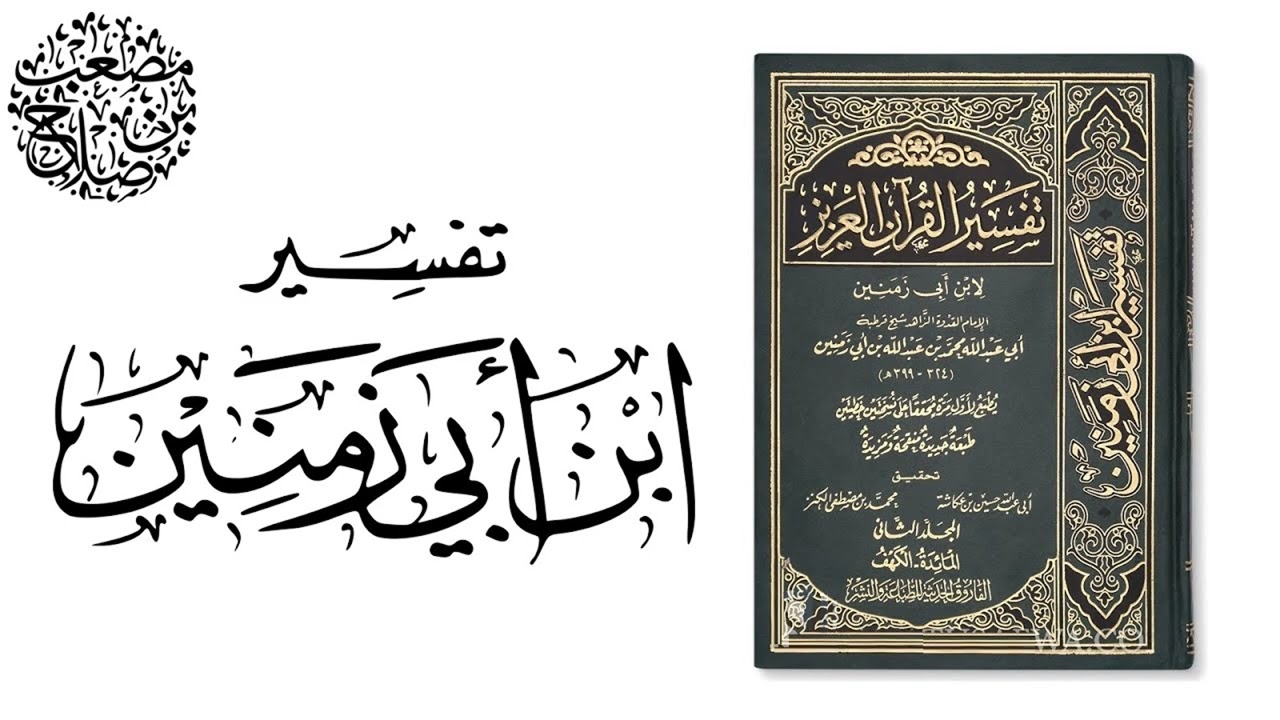 مصعب
بن
صلاح
تفسير
ابْن أَبي زَمَنِيْن
تفسِيرُ القُرآن العَزِيز
لِابْنِ أَبِي زَمَنِين
الإمام القدوة الزَّاهد شيخ قرطبة
أبي عَبْد اللَّه محمَّد بن عَبْد اللَّه بن أبي زَمَنِين
(٣٢٤ - ٣٩٩ هـ)
يُطبَعُ لأوّل مَرَّة مُحَقَّقاً عَلى نُسخَتَين خَطِّيَتَين
طَبعَةٌ جَدِيدَةٌ مُنَقَّحَةٌ وَمَزِيدَةٌ
تحقيق
أبي عبد الله حسين بن عكاشة محمَّد بن مصطفى الكنز
المجلّد الثَّاني
المَائِدَة - الكَهْف
الفَاروق الحَديثَة للطِّبَاعَة والنَّشر
تفسير ابن أبي زمنين
WA.CO